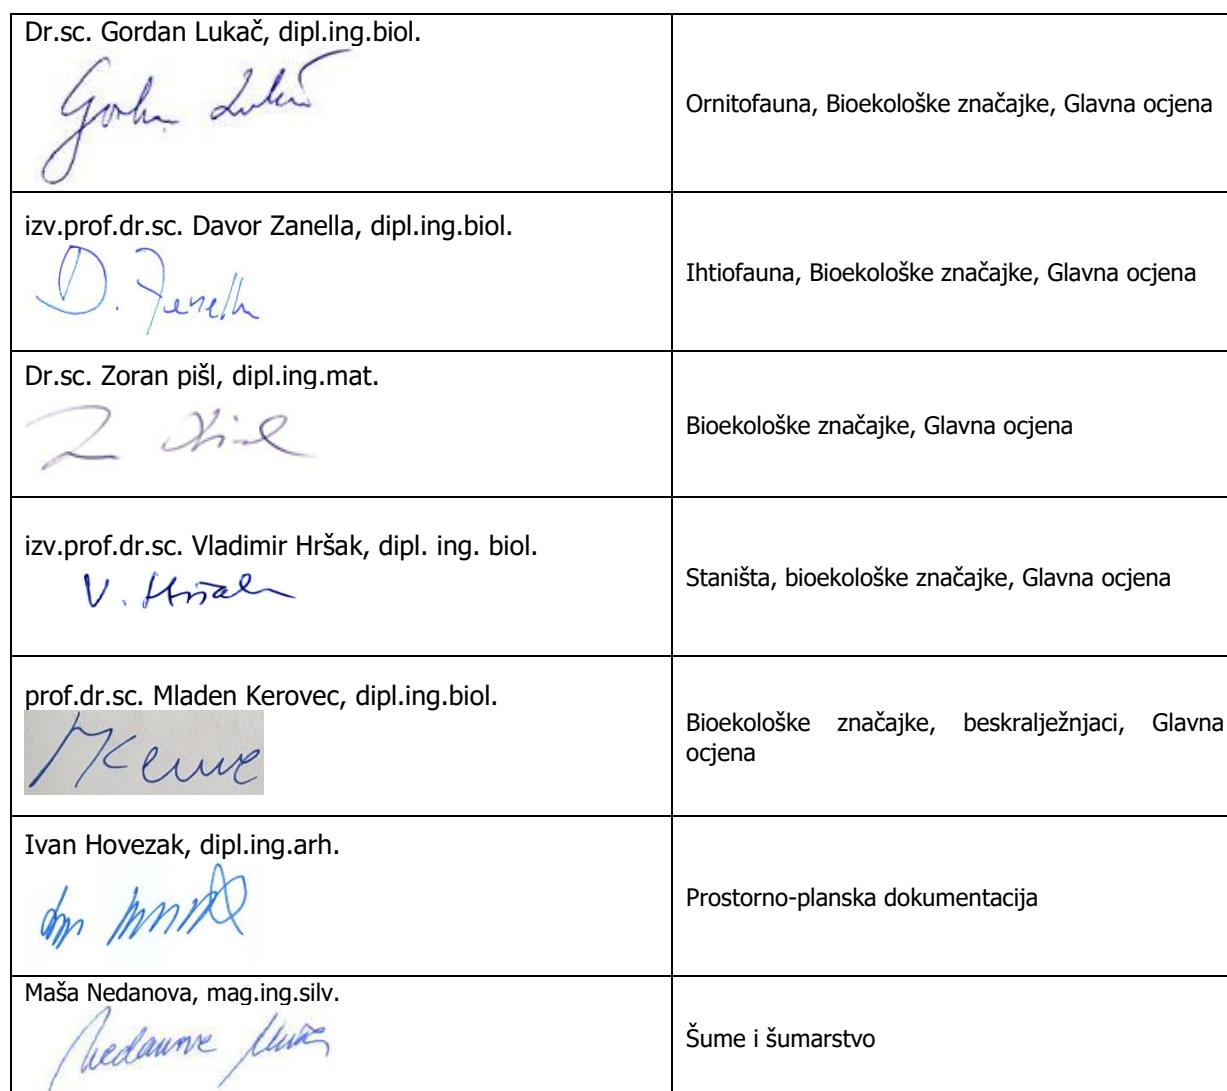 Dr.sc. Gordan Lukač, dipl.ing.biol.
Ornitofauna, Bioekološke značajke, Glavna ocjena
izv.prof.dr.sc. Davor Zanella, dipl.ing.biol.
D. Zanella
Ihtiofauna, Bioekološke značajke, Glavna ocjena
Dr.sc. Zoran pišl, dipl.ing.mat.
Bioekološke značajke, Glavna ocjena
izv.prof.dr.sc. Vladimir Hršak, dipl. ing. biol.
V. Hršak
Staništa, bioekološke značajke, Glavna ocjena
prof.dr.sc. Mladen Kerovec, dipl.ing.biol.
Bioekološke značajke, beskralježnjaci, Glavna
ocjena
Ivan Hovezak, dipl.ing.arh.
Prostorno-planska dokumentacija
Maša Nedanova, mag.ing.silv.
Šume i šumarstvo